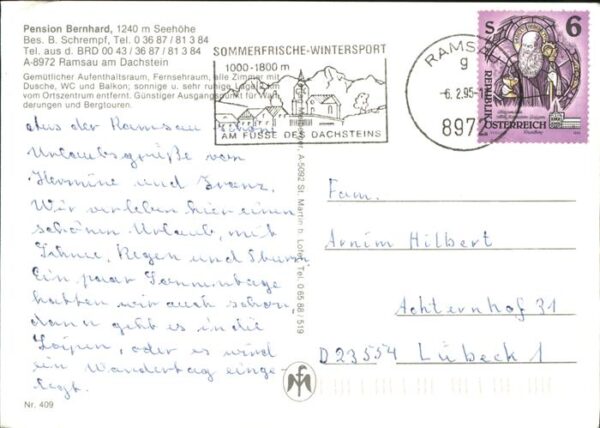 Pension Bernhard, 1240 m Seehöhe
Bes. B. Schrempf, Tel. 0 36 87 / 81 3 84
Tel. aus d. BRD 00 43 / 36 87 / 81 3 84
A-8972 Ramsau am Dachstein
Gemütlicher Aufenthaltsraum, Fernsehraum, alle Zimmer mit
Dusche, WC und Balkon; sonnige u. sehr ruhige Lage,
vom Ortszentrum entfernt. Günstiger Ausgangspunkt für Wan-
derungen und Bergtouren.
SOMMERFRISCHE-WINTERSPORT
1000-1800 m
AM FUSSE DES DACHSTEINS
RAMSAU
g
-6. 2. 95-
8972
S 6
REPUBLIK
ÖSTERREICH
Aus der Ramsau schöne
Urlaubsgrüße von
Hermine und Franz.
Wir verleben hier einen
schönen Urlaub, mit
Schnee, Regen und Sturm.
Ein paar Sonnentage
hatten wir auch schon,
dann geht es in die
Loipen, oder es wird
ein Wandertag einge-
legt.
A-5092 St. Martin b. Lofer, Tel. 0 65 88 / 519
Fam.
Arnim Hilbert
Achternhof 31
D 23554 Lübeck 1
Nr. 409